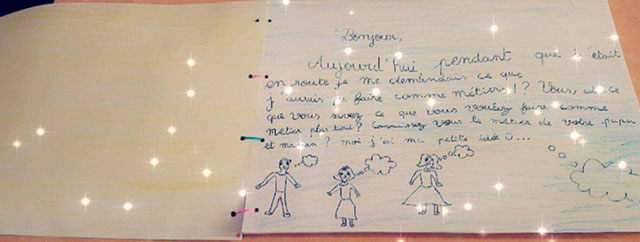 Bonjour,
Aujourd'hui pendant que j'étais
en route je me demandais ce que
j'aurais pu faire comme métier!? Vous, est ce
que vous savez ce que vous voulez faire comme
métier plus tard? Connaissez vous le métier de votre papa
et maman? moi j'ai ma petite idée ü...